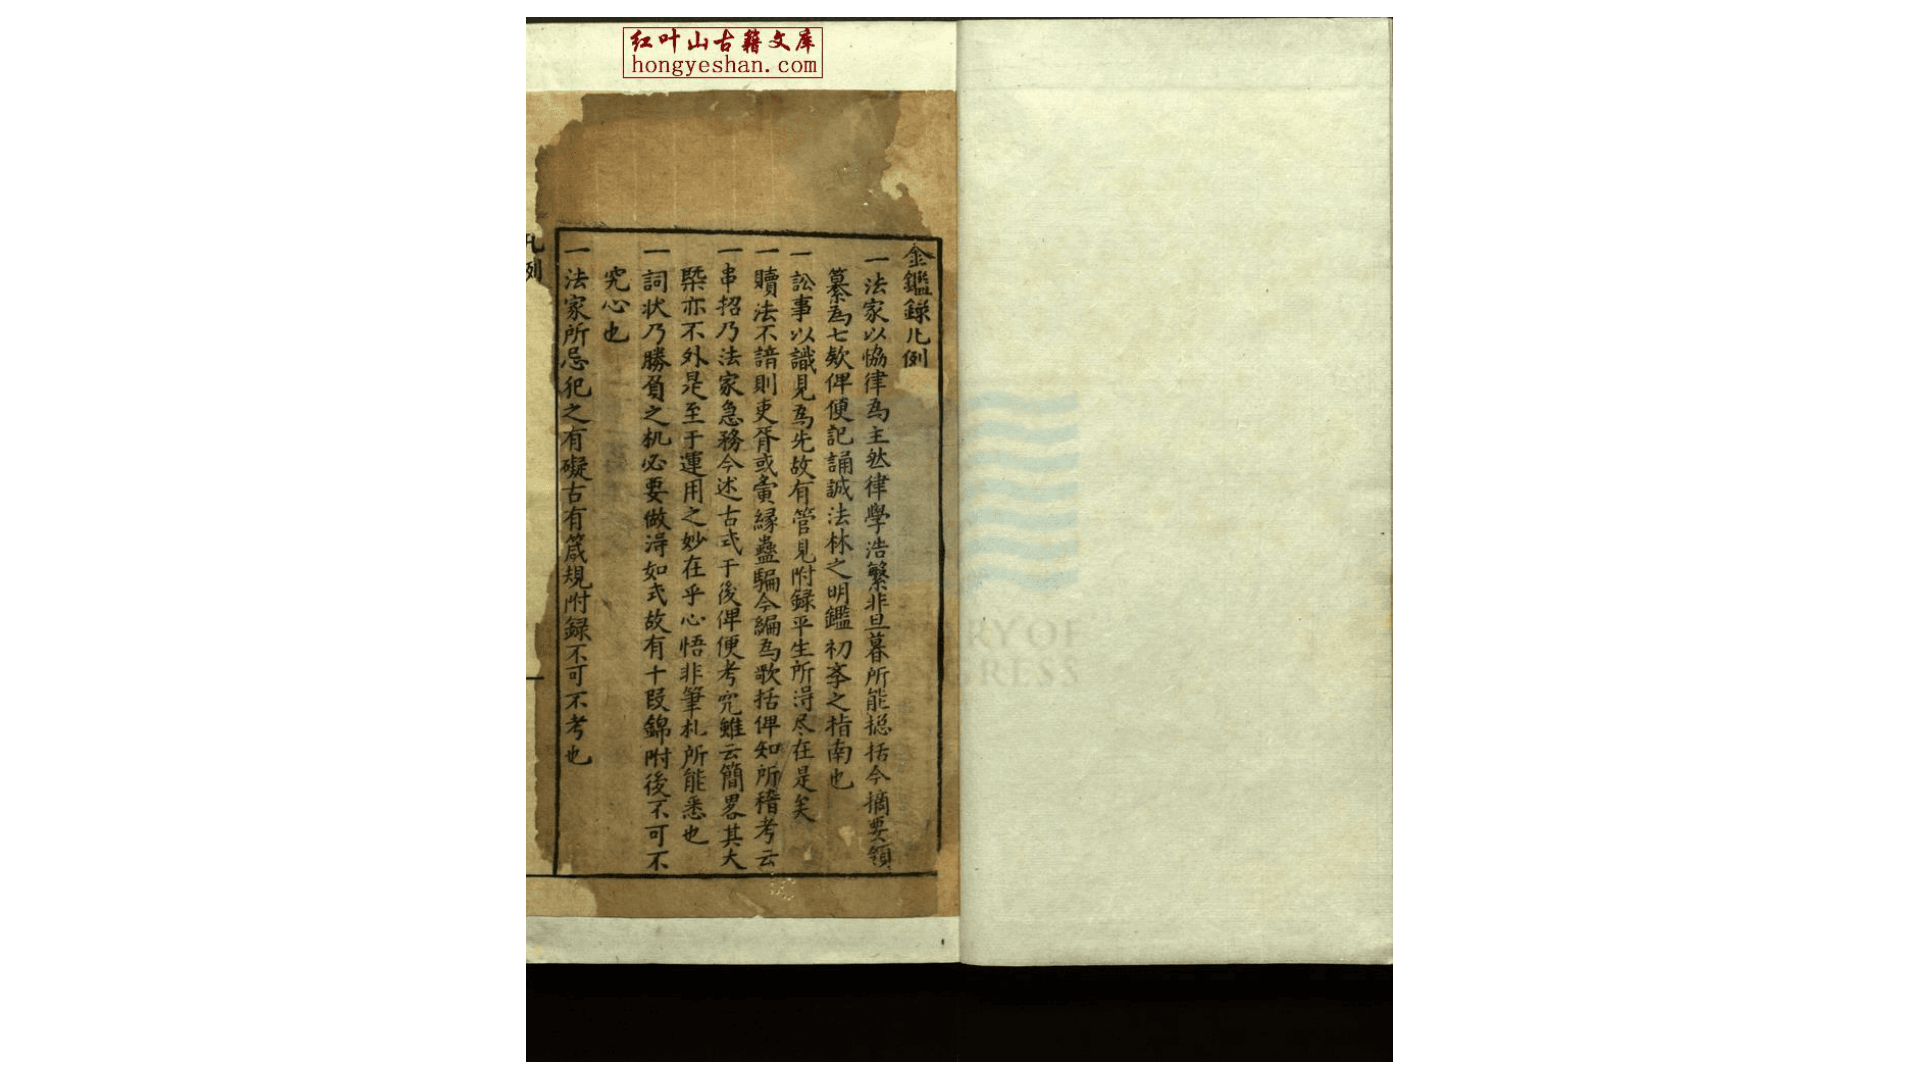 红叶山古籍文库
hongyeshan.com
金鑑録凡例
一法家以恊律為主然律學浩繁非旦暮所能揔括今摘要領
纂為七欵俾便記誦誠法林之明鑑初孝之指南也
一訟事以識見為先故有管見附録平生所淂尽在是矣
一贖法不諳則吏胥或夤縁蠱騙今編為歌括俾知所稽考云
一串招乃法家急務今述古式于後俾便考究雖云簡畧其大
槩亦不外是至于運用之妙在乎心悟非筆札所能悉也
一詞状乃勝負之机必要做淂如式故有十段錦附後不可不
究心也
一法家所忌犯之有礙古有箴規附録不可不考也
凡例
RY OF
GRESS